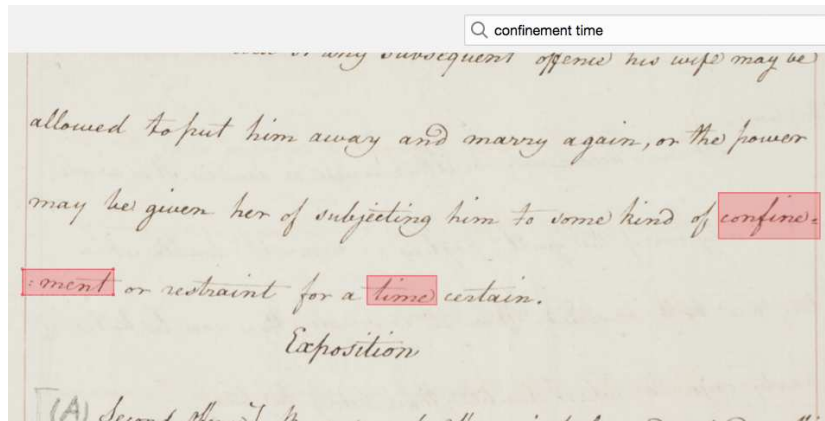 confinement time
or any subsequent offence his wife may be
allowed to put him away and marry again, or the power
may be given her of subjecting him to some kind of confine=
=ment or restraint for a time certain.
Exposition
(A) Second